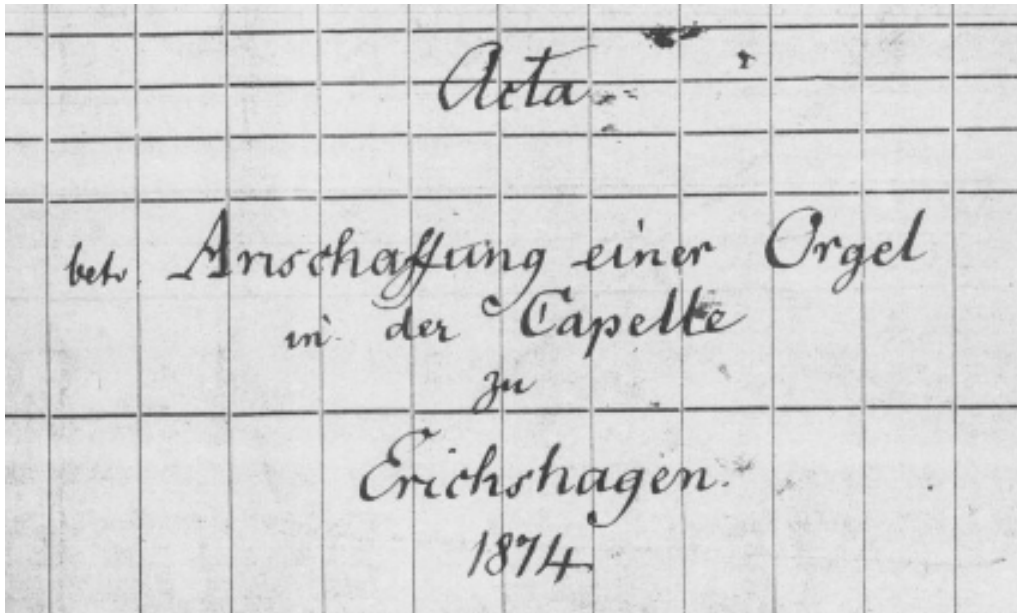 Acta
betr. Anschaffung einer Orgel
in der Capelle
zu
Erichshagen.
1874